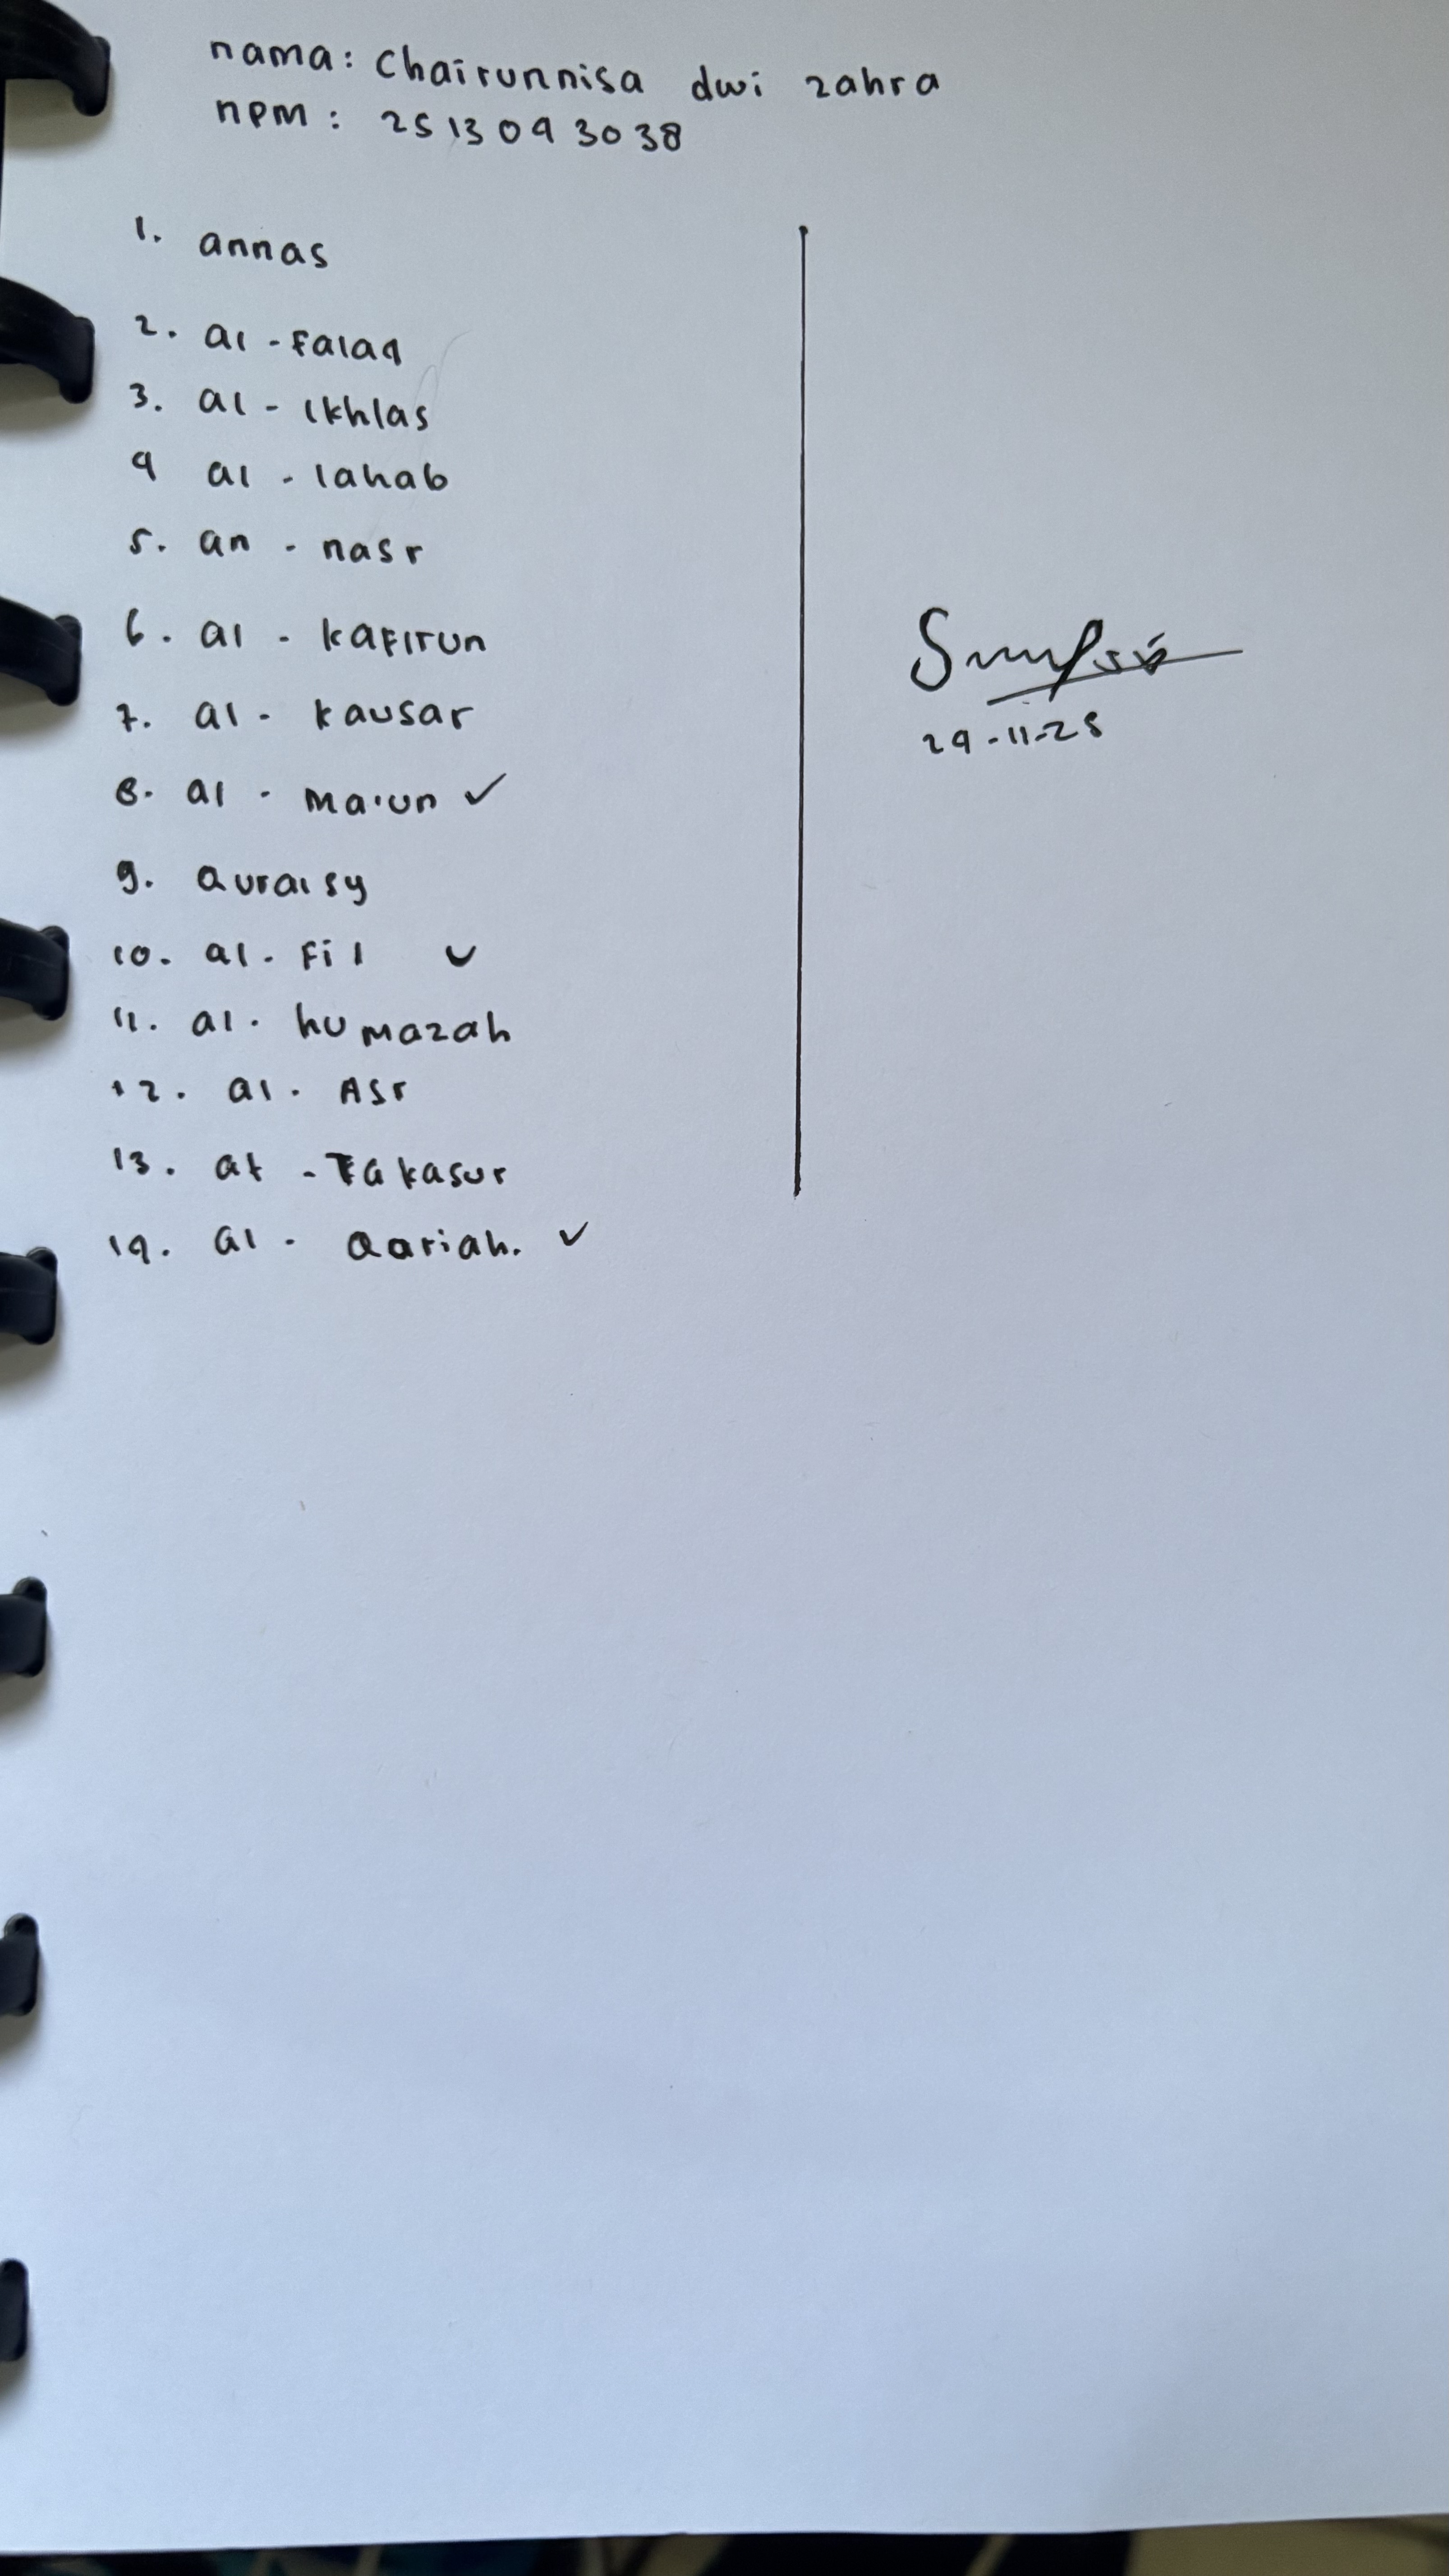 nama: Chairunnisa dwi zahra
npm: 2513043038
1. annas
2. al - Falaq
3. al - Ikhlas
4 al - lahab
5. an - nasr
6. al - kaFirun
7. al - kausar
8. al - ma'un ✓
9. Quraisy
10. al - Fil ✓
11. al - humazah
12. al - ASr
13. at - Takasur
14. al - Qariah. ✓
29-11-25